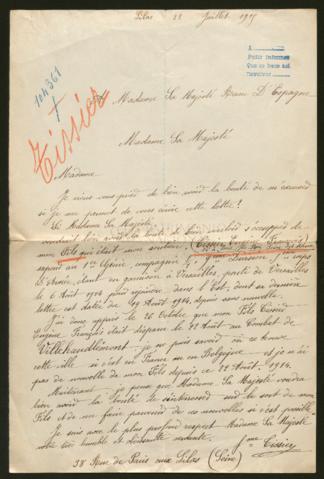 Lilas 28 Juillet 1915
A
Pedir informes
104361
Tissier
Madame Sa Majesté Reine D'Espagne
Madame Sa Majesté
Madame
Je vous prie de bien avoir la bonté de m'excuser
si je me permet de vous écrire cette lettre!
Si Madame Sa Majesté
voudrait bien avoir la bonté de s'occuper de
mon Fils qui était aux armées. (Tissier
sapeur au 1er Génie, compagnie Division, corps
d'Armée, étant en garnison à Versailles, partie de Versailles
le 6 Août 1914 pour rejoindre, dans l'Est, dont sa dernière
lettre est datée du 19 Août 1914, depuis sans nouvelle.
J'ai reçu après le 26 Octobre que mon Fils Tissier
Eugène François était disparu le 22 Août au Combat de
Villehaudlémont, je ne puis savoir où se trouve
cette ville si c'est en France ou en Belgique et je n'ai
pas de nouvelle de mon Fils depuis ce 22 Août 1914.
Maintenant je pense que Madame Sa Majesté voudra
bien avoir la bonté de s'intéresser sur le sort de mon
Fils et de me faire parvenir de ces nouvelles si c'est possible.
Je suis avec le plus profond respect Madame Sa Majesté
votre très humble et obéissante servante.
Mme Tissier
38 Rue de Paris aux Lilas (Seine)